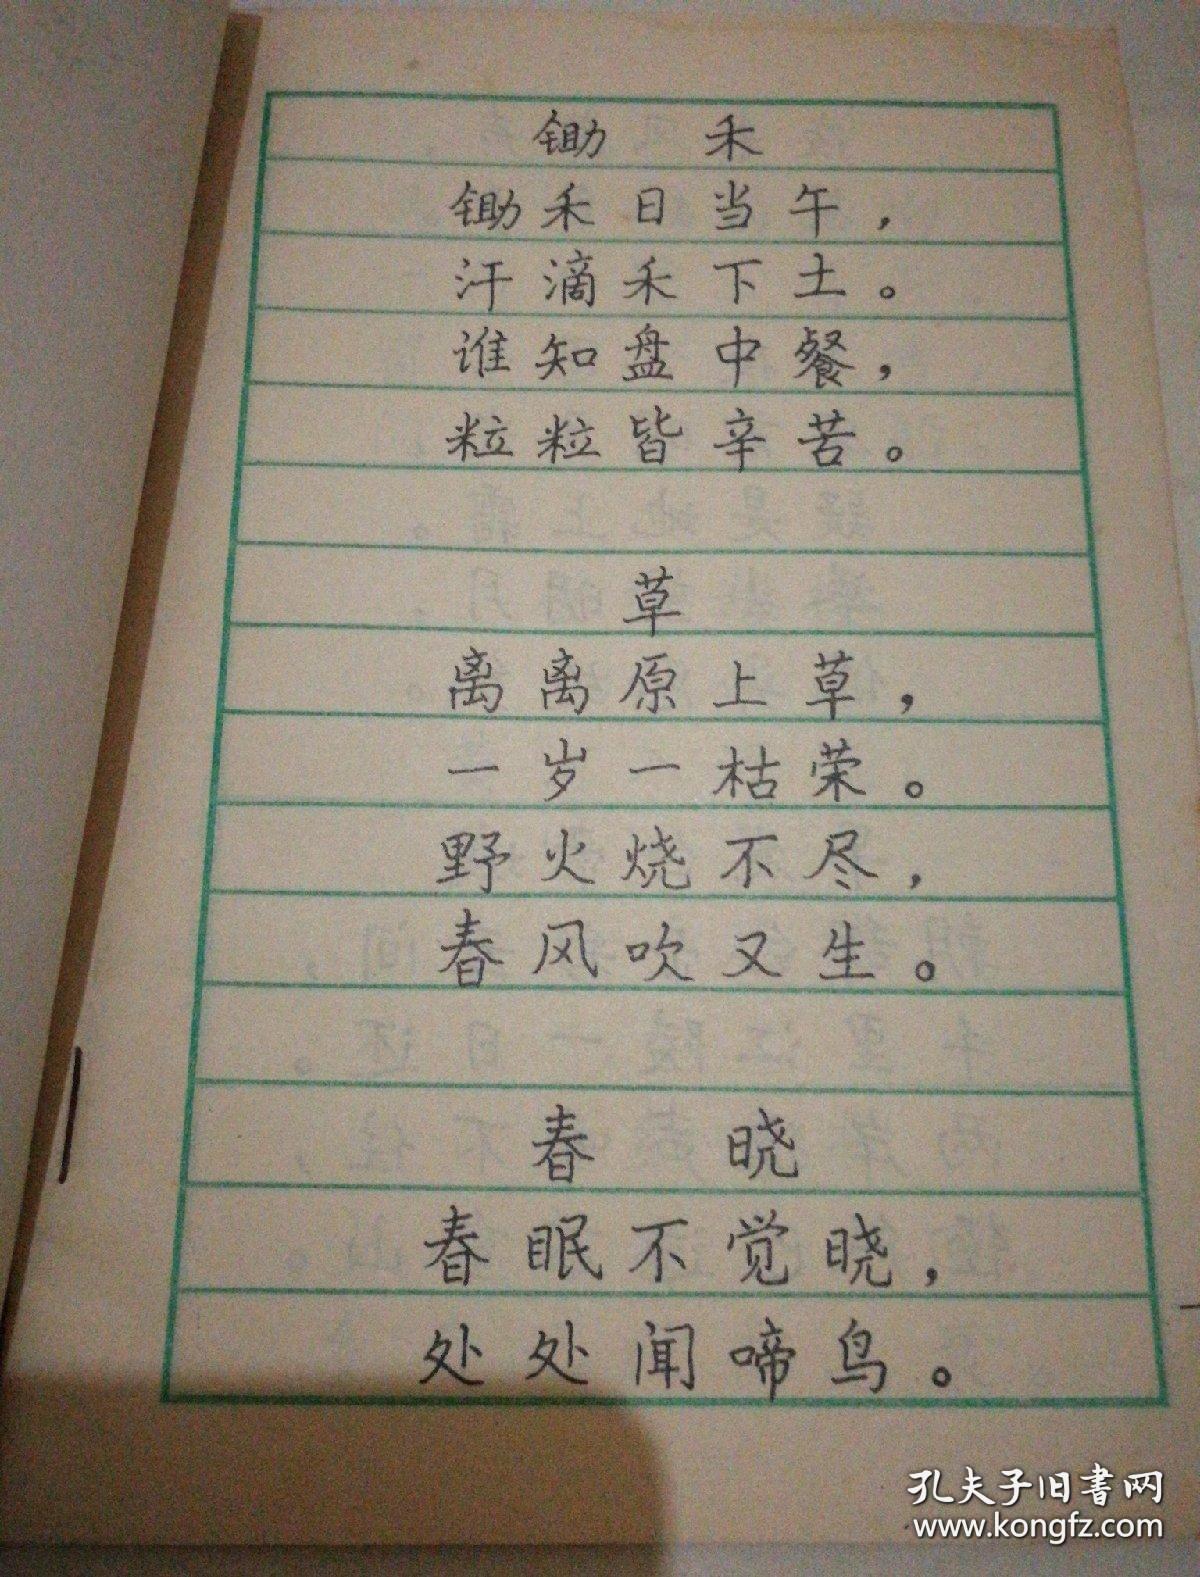 锄禾
锄禾日当午，
汗滴禾下土。
谁知盘中餐，
粒粒皆辛苦。
草
离离原上草，
一岁一枯荣。
野火烧不尽，
春风吹又生。
春晓
春眠不觉晓，
处处闻啼鸟。
孔夫子旧书网
www.kongfz.com